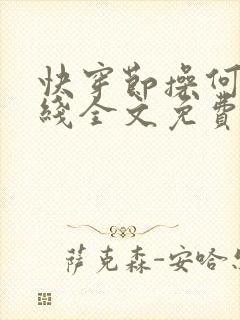 快穿节操何
线全文免费
萨克森-安哈